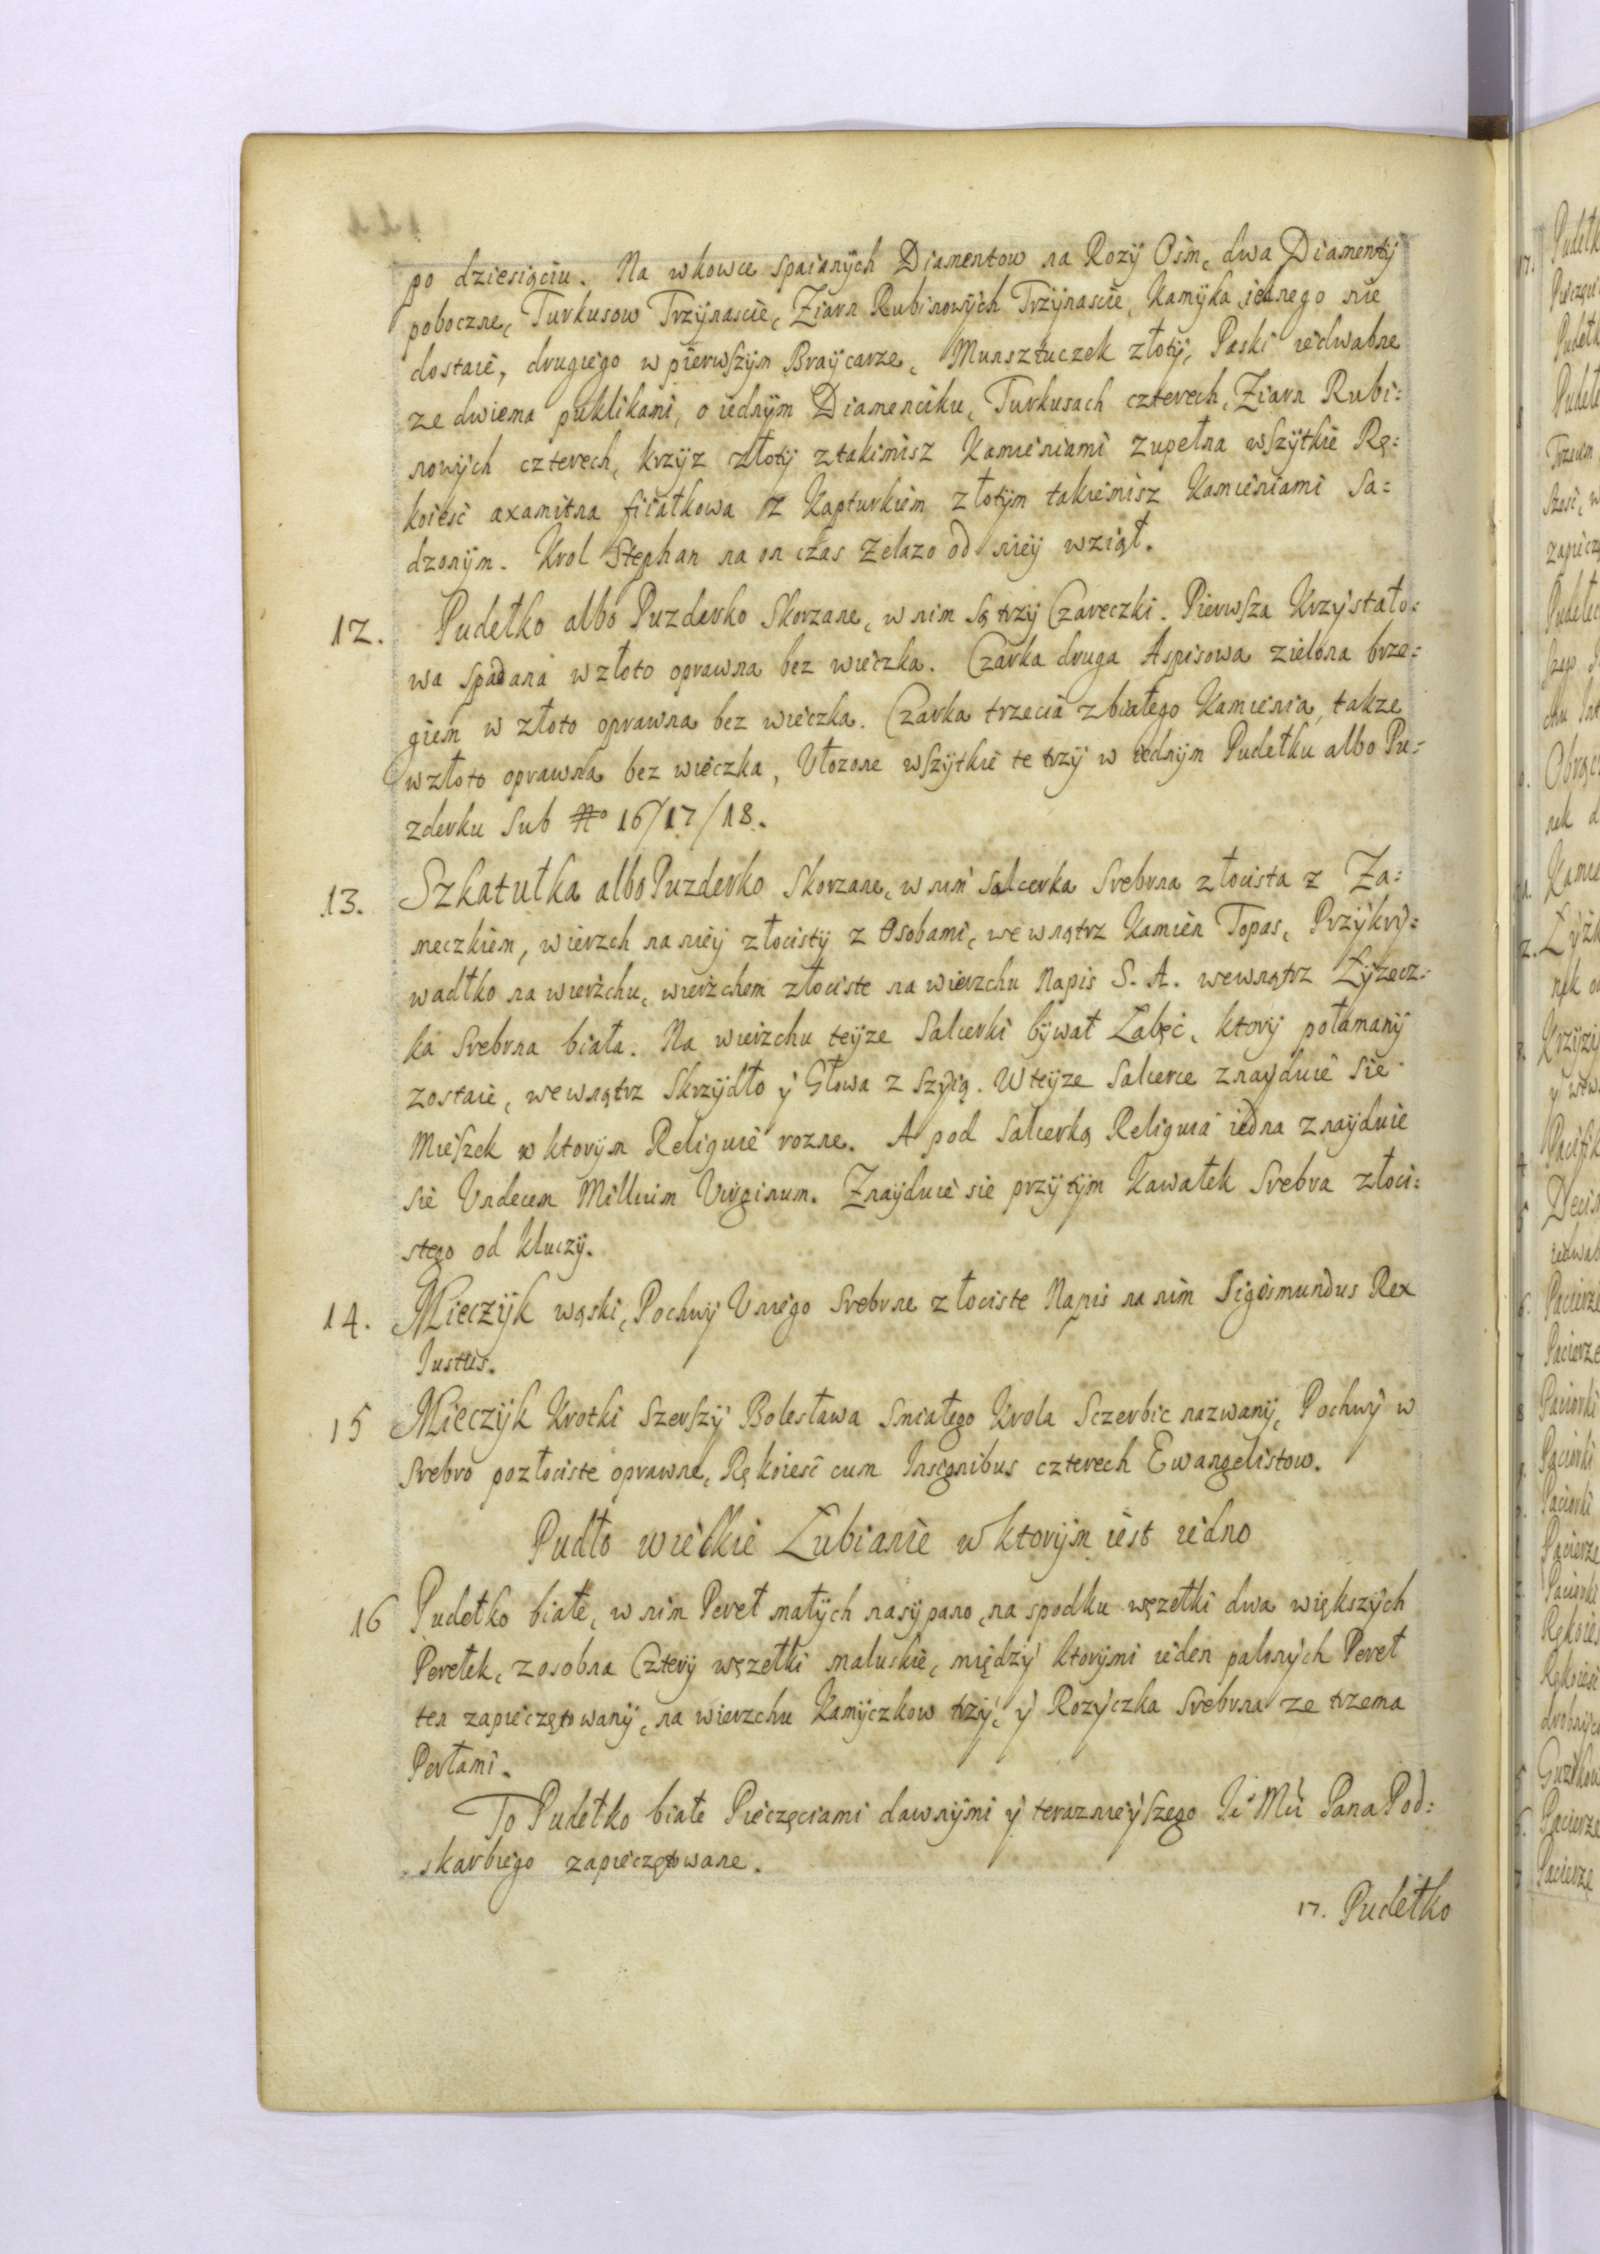 po dziesiąciu. Na wkowce spaianych Diamentow na Rozy Osm, dwa Diamenty
poboczne, Turkusow Trzynascie, Ziarn Rubinowych Trzynascie, Kamyka iednego nie
dostaie, drugiego w pierwszym Braycarze, Munsztuczek złoty, Paski iedwabne
ze dwiema puklikami, o iednym Diamenciku, Turkusach czterech, Ziarn Rubi:
nowych czterech, krzyz złoty ztakimisz Kamieniami zupełna wszytkie Rę:
koiesc axamitna fiiałkowa z Kapturkiem złotym takiemisz Kamieniami Sa:
dzonym. Krol Stephan na on czas Zelazo od niey wziął.
12. Pudełko albo Puzderko Skorzane, w nim Są trzy Czareczki. Pierwsza Krzyształo:
wa Spadana wzłoto oprawna bez wieczka. Czarka druga Aspisowa zielona brze:
giem w złoto oprawna bez wieczka. Czarka trzecia zbiałego Kamienia, takze
wzłoto oprawna bez wieczka, Ułozone wszytkie te trzy w iednym Pudełku albo Pu:
zderku Sub No 16/17/18.
13. Szkatułka albo Puzderko Skorzane, w nim Salcerka Srebrna złocista z Za:
meczkiem, wierzch na niey złocisty z Osobami, wewnątrz Kamien Topas, Przykry:
wadłko na wierzchu, wierzchem złociste na wierzchu Napis S. A. wewnątrz Łyzecz:
ka Srebrna biała. Na wierzchu teyze Salcerki bywał Łabęc, ktory połamany
zostaie, wewnątrz Skrzydło y Głowa z Szyią. Wteyze Salcerce znayduie Sie
Mieszek w ktorym Reliquie rozne. A pod Salcerką Reliquia iedna znayduie
sie Undecem Millium Virginum. Znayduie sie przy tym Kawałek Srebra złoci:
stego od kluczy.
14. Mieczyk wąski, Pochwy Uniego Srebrne złociste Napis na nim Sigismundus Rex
Iustus.
15 Mieczyk Krotki Szerszy Bolesława Smiałego Krola Sczerbic nazwany, Pochwy w
Srebro pozłociste oprawne, Rękoiesc cum Insignibus czterech Ewangelistow.
Pudło wielkie Łubianie w ktorym iest iedno
16 Pudełko białe, w nim Pereł małych nasypano, na spodku węzełki dwa większych
Perełek, zosobna Cztery węzełki maluskie, między ktorymi ieden palonych Pereł
ten zapieczętowany, na wierzchu Kamyczkow trzy, y Rozyczka Srebrna ze trzema
Perłami.
To Pudełko białe Pieczęciami dawnymi y teraznieyszego Ie° Mći Pana Pod:
skarbiego zapieczętowane.
17. Pudełko